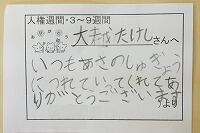 人権週間・3~9週間
大越たけしさんへ
いつもあさの
につれていってくれてあ
りがとうございます
より